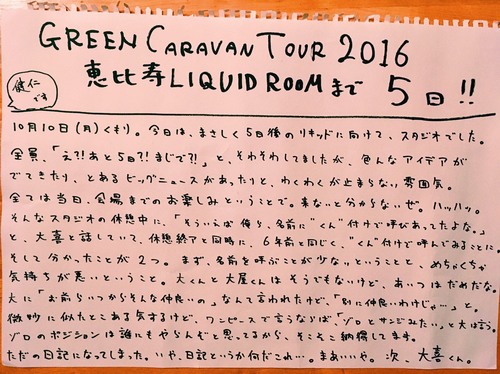 GREEN CARAVAN TOUR 2016
恵比寿LIQUID ROOMまで 5日!!
健仁です
10月10日(月)くもり。今日は、まさしく5日後のリキッドに向けて、スタジオでした。
全員、「え?!あと5日?!まじで?!」と、そわそわしてましたが、色んなアイデアが
でてきたり、とあるビッグニュースがあったりと、わくわくが止まらない雰囲気。
全ては当日、会場までのお楽しみということで。来ないと分からないぜ。ハッハッ。
そんなスタジオの休憩中に、「そういえば俺ら、名前に"くん"付けで呼びあってたよな。」
と、大喜と話していて、休憩終了と同時に、6年前と同じく、"くん"付けで呼んでみることに。
そして分かったことが2つ。まず、名前を呼ぶことが少ないということと、めちゃくちゃ
気持ちが悪いということ。大くんと大屋くんはそうでもないけど、あいつはだめだな。
大に「お前らいつからそんな仲良いの」なんて言われたけど、「別に仲良いわけじゃ…」と。
微妙に似たとこある気するけど、ワンピースで言うならば、「ゾロとサンジみたい。」と大は言う。
ゾロのポジションは誰にもやらんぞと思ってるから、そこそこ納得してます。
ただの日記になってしまった。いや、日記というか何だこれ…。まあいいや。次、大喜くん。